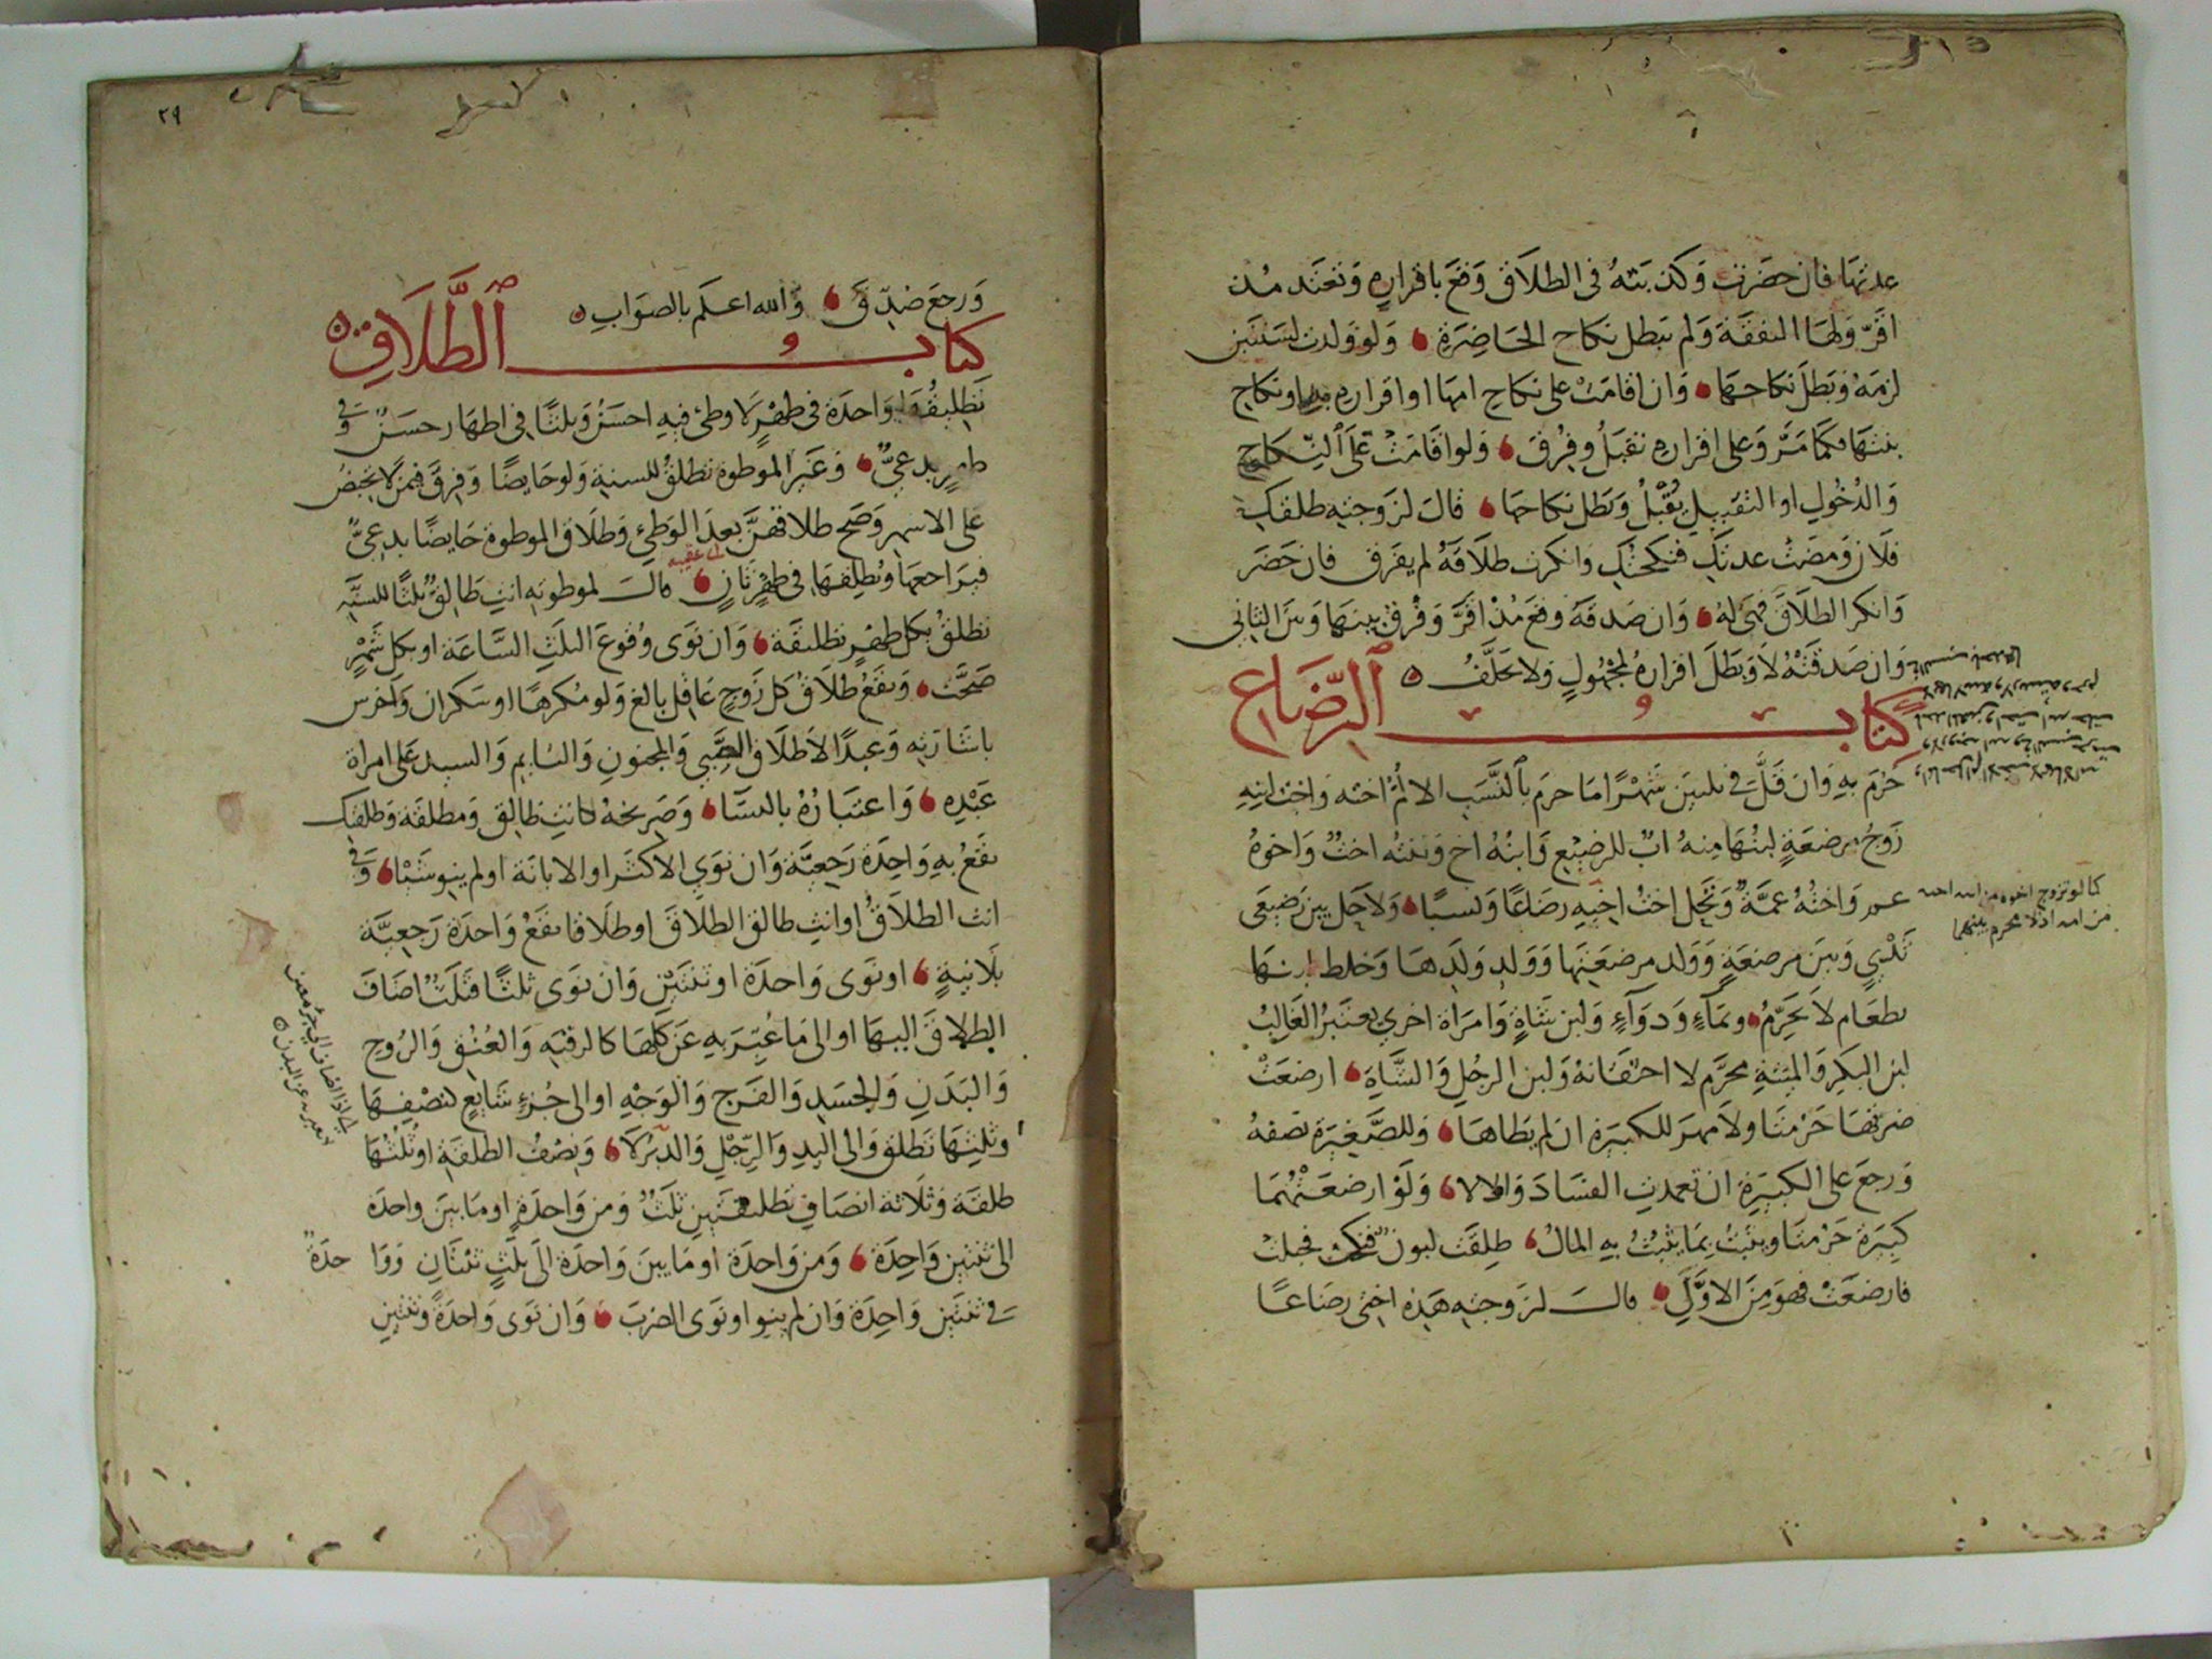 عدتها فان حضرت وكذبته في الطلاق وقع باقراره وتعتد مذ
اقر ولها النفقة ولم يبطل نكاح الحاضرة ولو ولدت لسنتين
لزمه وبطل نكاحها وان اقامت على نكاح امها او اقراره به او نكاح
بنتها فكما مر وعلى اقراره تقبل وفرق ولو اقامت على النكاح
والدخول او التقبيل يقبل وبطل نكاحها قال لزوجته طلقك
فلان ومضت عدتك فنكحتك وانكرت طلاقه لم يفرق فان حضر
وانكر الطلاق فهى له وان صدقه وقع مذ اقر وفرق بينها وبين الثاني
وان صدقته لا وبطل اقراره لمجهول ولا يحلف
كتاب الرضاع
حرم به وان قل في ثلثين شهرا ما حرم بالنسب الا ام اخته واخت ابنه
زوج مرضعة لبنها منه اب للرضيع وابنه اخ وبنته اخت واخوه
عم واخته عمة وتحل اخت اخيه رضاعا ونسبا ولا حل بين رضيعى
كما لو تزوج اخوه من
من امه اذ لا محرم بينهما
ثدي وبين مرضعة وولد مرضعتها وولد ولدها وخلط لبنها
بطعام لا يحرم وبماء ودواء ولبن شاة وامراة اخرى يعتبر الغالب
لبن البكر والميتة محرم لا احتقانه ولبن الرجل والشاة ارضعت
ضرتها حرمتا ولا مهر للكبيرة ان لم يطاها وللصغيرة نصفه
ورجع على الكبيرة ان تعمدت الفساد والا لا ولو ارضعتهما
كبيرة حرمتا ويثبت بما يثبت به المال طلقت لبون فنكحت فحبلت
فارضعت فهو من الاول قال لزوجته هذه اختى رضاعا
٢٩
ورجع صدق والله اعلم بالصواب
كتاب الطلاق
تطليقها واحدة في طهر لا وطئ فيه احسن وثلثا في اطهار حسن وفي
طهر بدعي وغير الموطوة تطلق للسنة ولو حايضا وفرق فيمن لا تحيض
على الاشهر وصح طلاقهن بعد الوطئ وطلاق الموطوة حايضا بدعي
فيراجعها ويطلقها في طهر ثان قال لموطوته انت طالق ثلثا للسنة
تطلق بكل طهر تطليقة وان نوى وقوع الثلث الساعة او بكل شهر
صحت ويقع طلاق كل زوج عاقل بالغ ولو مكرها او سكران واخرس
باشارته وعبدا لا طلاق الصبي والمجنون والنايم والسيد على امراة
عبده واعتباره بالنسا وصريحه كانت طالق ومطلقة وطلقتك
يقع به واحدة رجعية وان نوى الاكثر او الابانة او لم ينو شيئا وفي
انت الطلاق او انت طالق الطلاق او طلاقا يقع واحدة رجعية
بلا نية او نوى واحدة او ثنتين وان نوى ثلثا فثلث اضاف
الطلاق اليها او الى ما عبر به عن كلها كالرقبة والعنق والروح
والبدن والجسد والفرج والوجه او الى جزء شايع كنصفها
وثلثها تطلق والى اليد والرجل والدبر لا ونصف الطلقة او ثلثها
طلقة وثلاثة انصاف تطليقتين ثلث ومن واحدة او ما بين واحدة
الى ثنتين واحدة ومن واحدة او ما بين واحدة الى ثلث ثنتان وواحدة
في ثنتين واحدة وان لم ينو او نوى الضرب وان نوى واحدة وثنتين